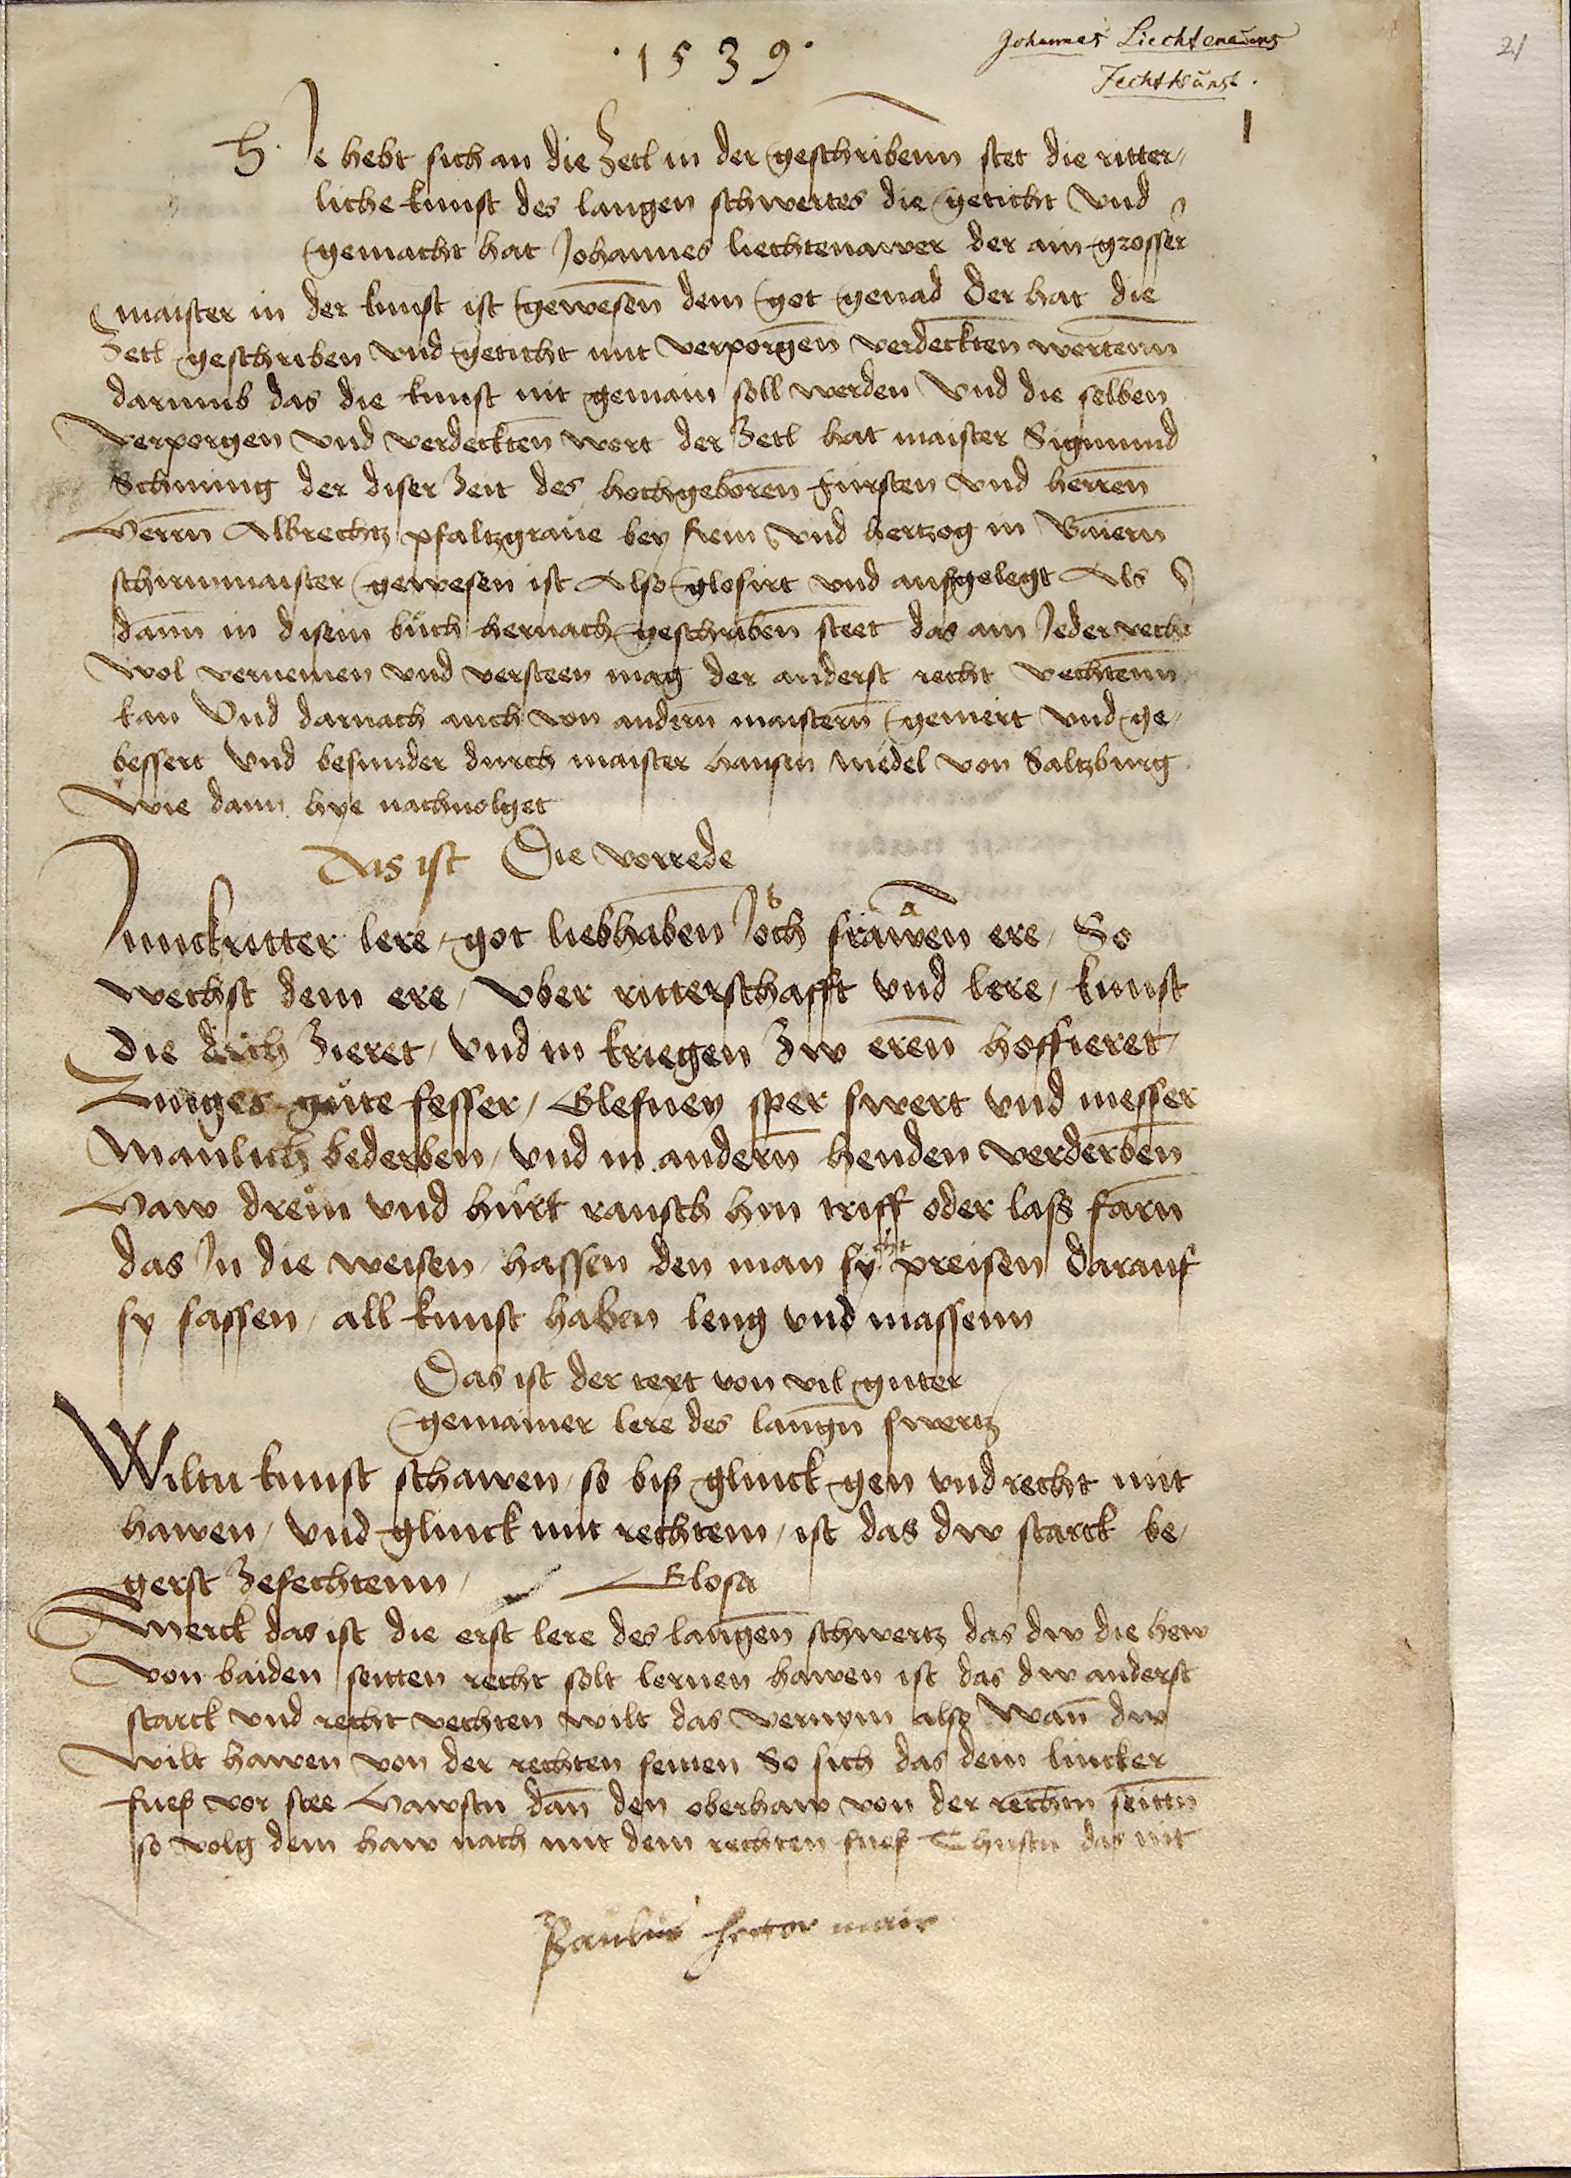 · 1 5 3 9 ·
Johannes Liechtenauers
Fechtkunst.
21
1
H. Je hebt sich an die Zetl in der geschribenn stet die ritter-
liche kunst des langen schwertes die geticht vnd
gemacht hat Johannes liechtenawer der ain grosser
maister in der kunst ist gewesen dem got genad Der hat die
Zetl geschriben vnd geticht mit verporgen verdeckten wortenn
darumb das die kunst nit gemain soll werden Vnd die selben
verporgen vnd verdeckten wort der Zetl hat maister Sigmund
Schining der diser Zeit des hochgeboren fursten vnd herren
Herrn Albrechtz pfaltzgraue bey Rein vnd hertzog in Baiern
schirmmaister gewesen ist Also glosirt vnd ausgelegt Als
dann in disem büch hernach geschriben steet das ain Jeder
wol vernemen vnd versteen mag der anderst recht vechtenn
kan Vnd darnach auch von andern maistern gemert vnd ge-
bessert Vnd besunder durch maister hansen medel von Saltzburg
Wie dann hye nachuolget
Das ist Die vorrede
Junckritter lere / got liebhaben Joch frawen ere / So
wechst dem ere / vber ritterschafft vnd lere / kunst
die dich Zieret / vnd in kriegen Zw eren hoffieret /
Ringes gute fesser / Glefney sper swert vnd messer
Manlich bederben / vnd in andern henden verderben
Haw drein vnd hurt rausch hin triff oder lass farn
das In die weisen / hassen den man sycht preisen darauf
sy fassen / all kunst haben leng vnd massenn
Das ist der text von vil guter
gemainer lere des langn swertz
Wiltu kunst schawen / so bis glinck gen vnd recht mit
hawen / vnd glinck mit rechtem / ist das dw starck be-
gerst Zefechtenn / Glosa
Merck das ist die erst lere des langen schwertz das dw die hew
von baiden seitten recht solt lernen hawen ist das dw anderst
starck vnd recht vechten wilt das vernym also Wan dw
wilt hawen von der rechten seitten So sich das dein lincker
fues vor stee Hawstu dan den oberhaw von der rechtn seittn
so volg dem haw nach mit dem rechten fues Thustu das nit
Paulus hector mair